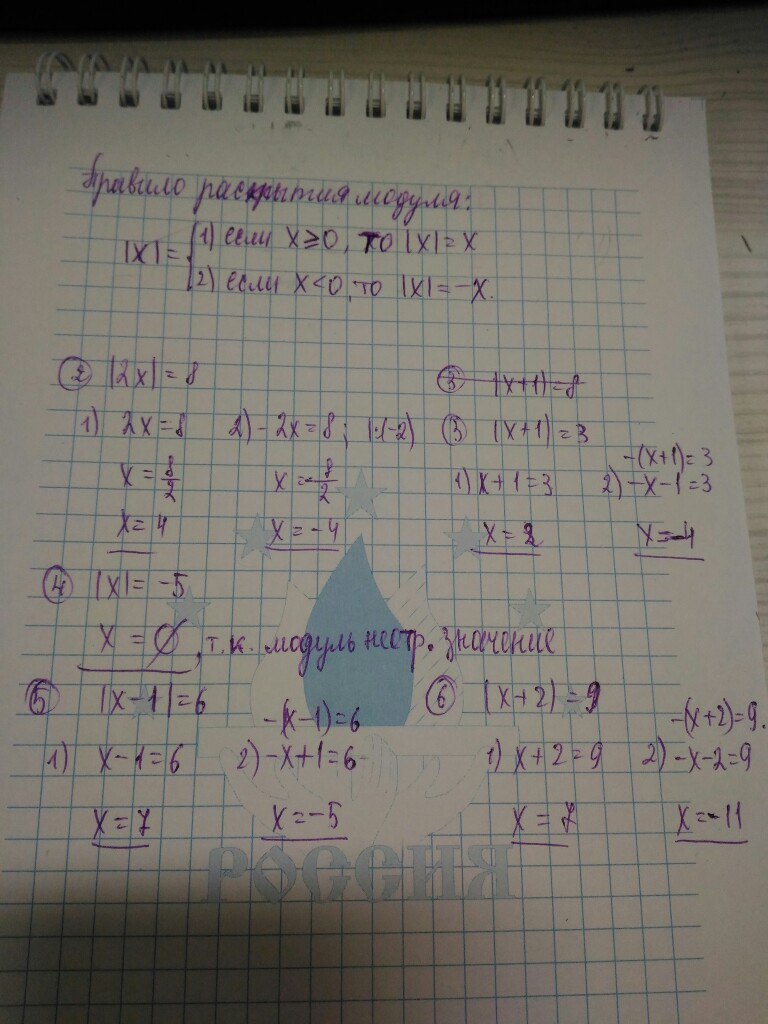 Правило раскрытия модуля:
|x| = { 1) если x ≥ 0, то |x| = x
2) если x < 0, то |x| = -x.
② |2x| = 8
1) 2x = 8 2) -2x = 8; |:(-2)
x = 8/2 x = -8/2
x = 4 x = -4
③ |x+1| = 8
③ |x+1| = 3
-(x+1) = 3
1) x+1 = 3 2) -x-1 = 3
x = 2 x = -4
④ |x| = -5
x = ∅, т.к. модуль неотр. значение
⑤ |x-1| = 6
-(x-1) = 6
1) x-1 = 6 2) -x+1 = 6
x = 7 x = -5
⑥ |x+2| = 9
-(x+2) = 9.
1) x+2 = 9 2) -x-2 = 9
x = 7 x = -11
РОССИЯ